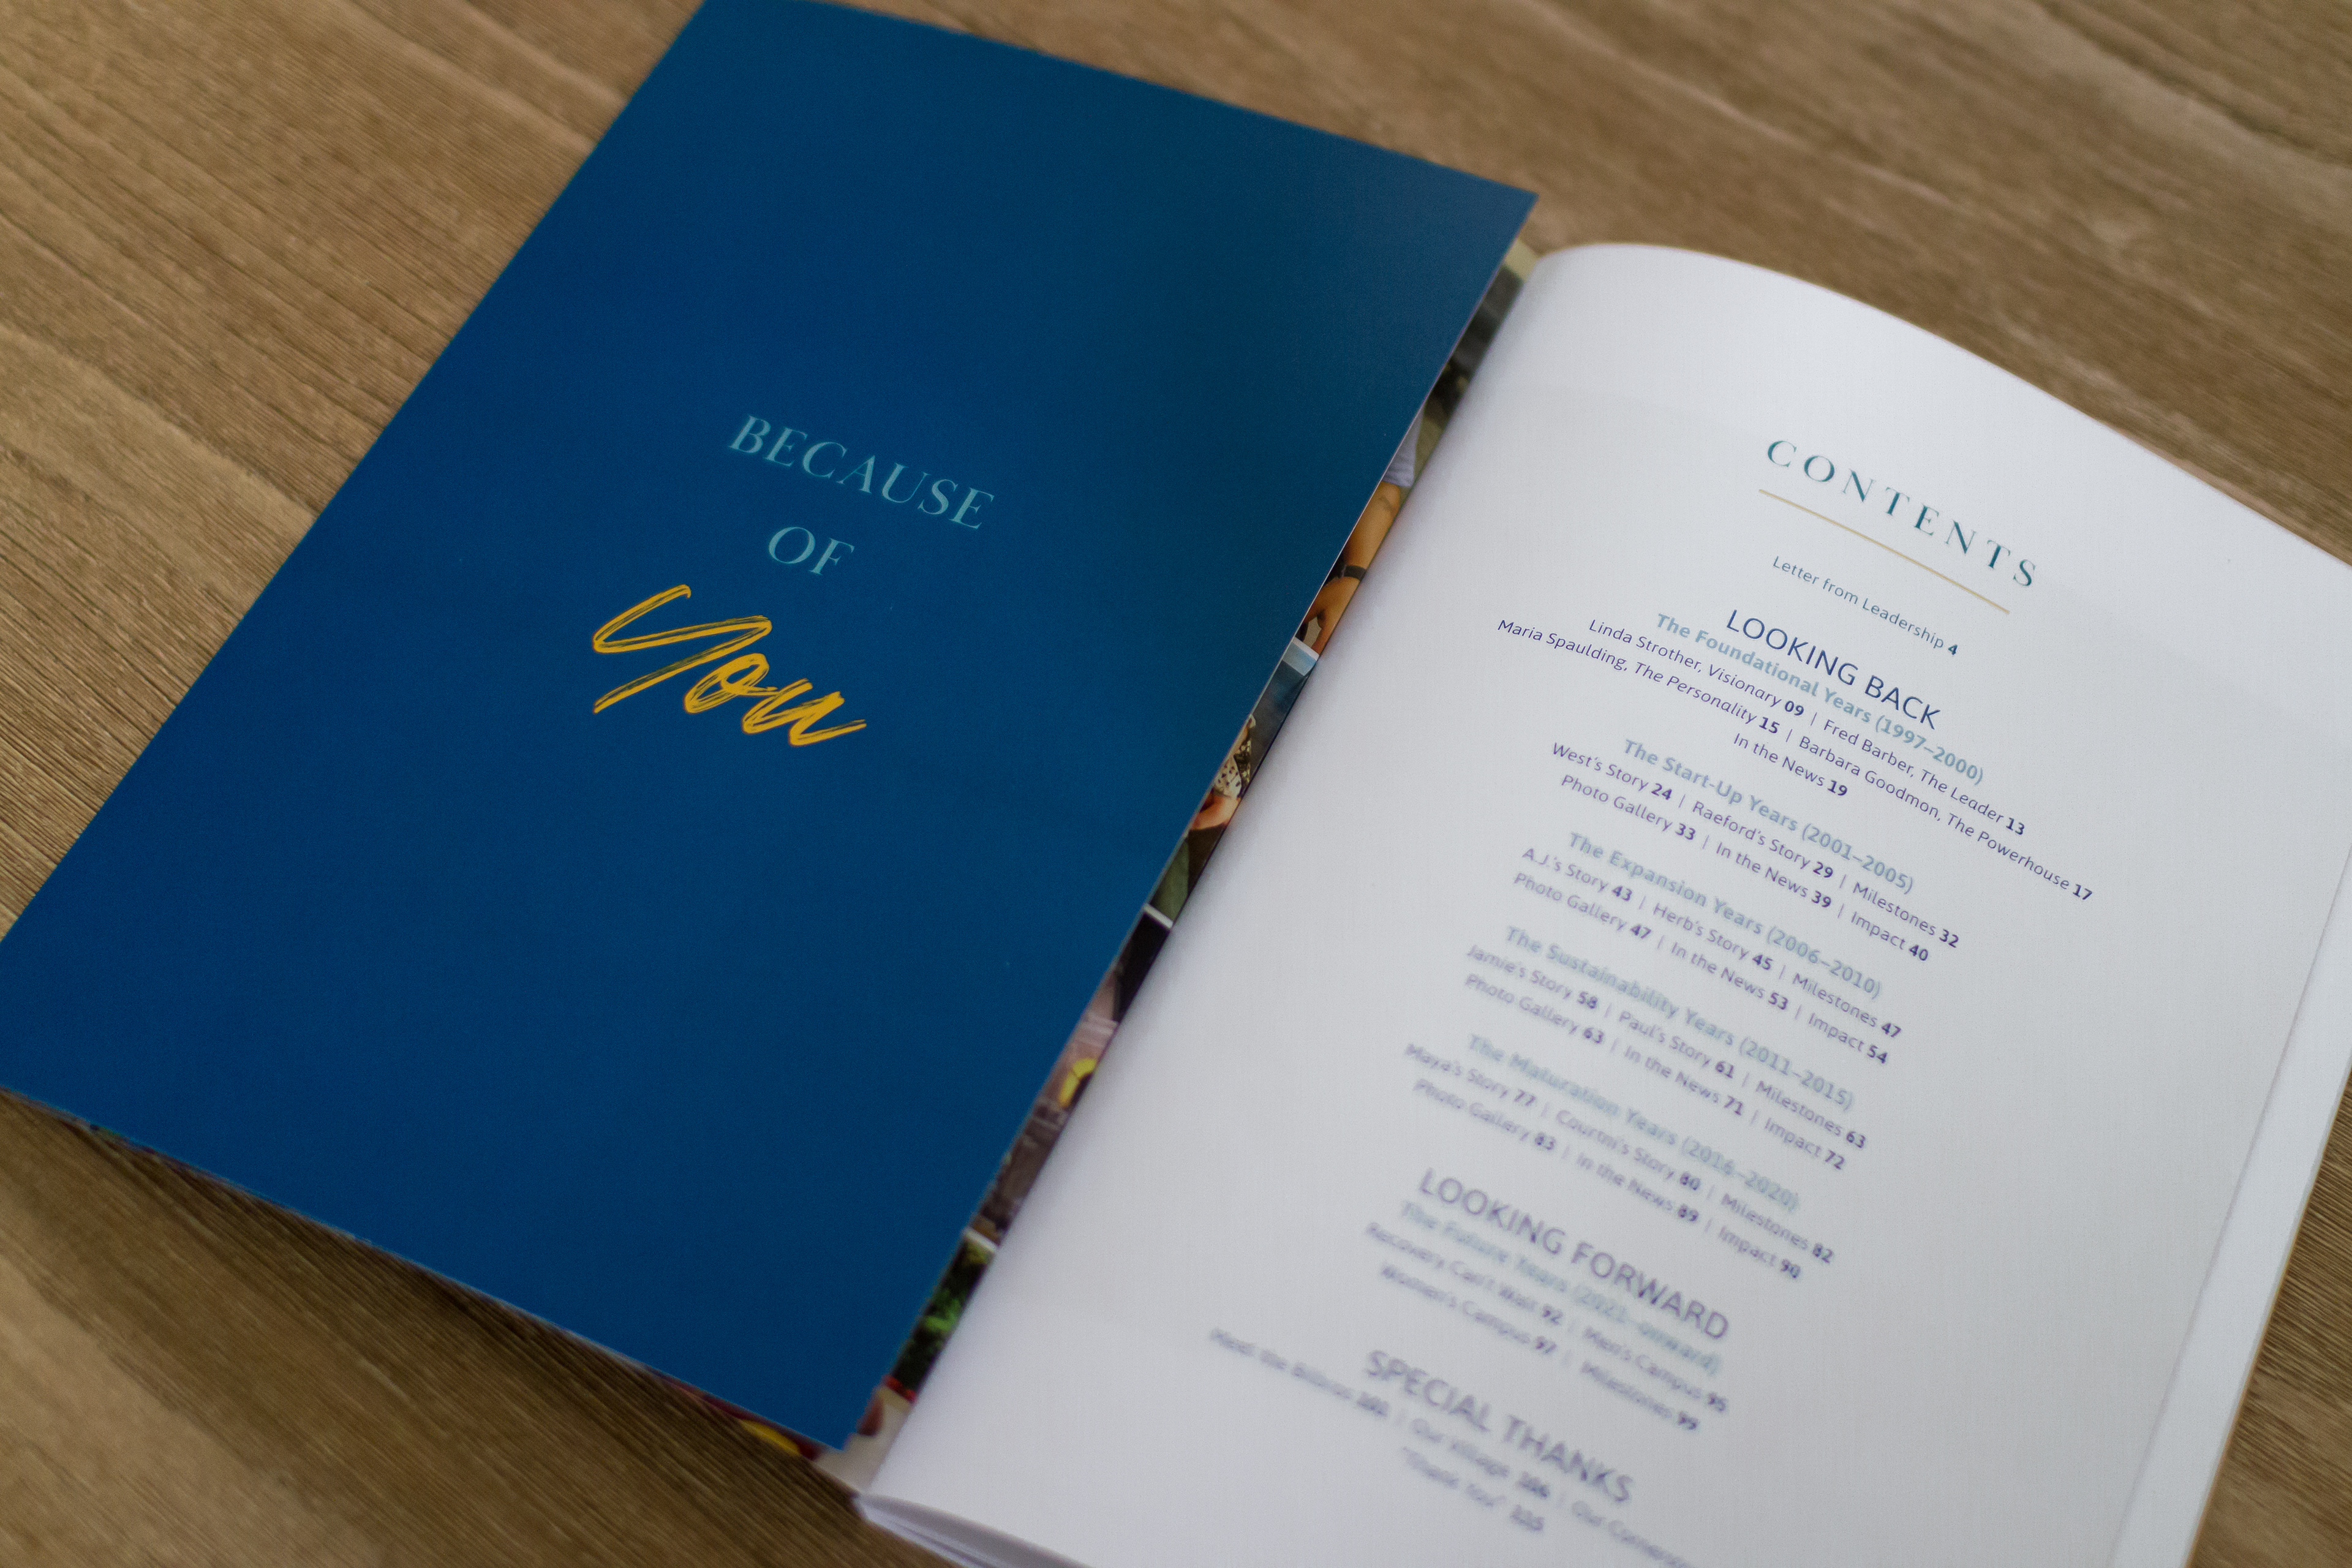 BECAUSE
OF
You
CONTENTS
Letter from Leadership 4
LOOKING BACK
The Foundational Years (1997–2000)
Linda Strother, Visionary 09 | Fred Barber, The Leader 13
Maria Spaulding, The Personality 15 | Barbara Goodmon, The Powerhouse 17
In the News 19
The Start-Up Years (2001–2005)
West's Story 24 | Raeford's Story 29 | Milestones 32
Photo Gallery 33 | In the News 39 | Impact 40
The Expansion Years (2006–2010)
A.J.'s Story 43 | Herb's Story 45 | Milestones 47
Photo Gallery 47 | In the News 53 | Impact 54
The Sustainability Years (2011–2015)
Jamie's Story 58 | Paul's Story 61 | Milestones 63
Photo Gallery 63 | In the News 71 | Impact 72
The Maturation Years (2016–2020)
Maya's Story 77 | Courtni's Story 80 | Milestones 82
Photo Gallery 83 | In the News 89 | Impact 90
LOOKING FORWARD
The Future Years (2021–onward)
Recovery Can't Wait 92 | Men's Campus 95
Women's Campus 97 | Milestones 99
SPECIAL THANKS
Meet the | Our Village | Our
"Thank You"